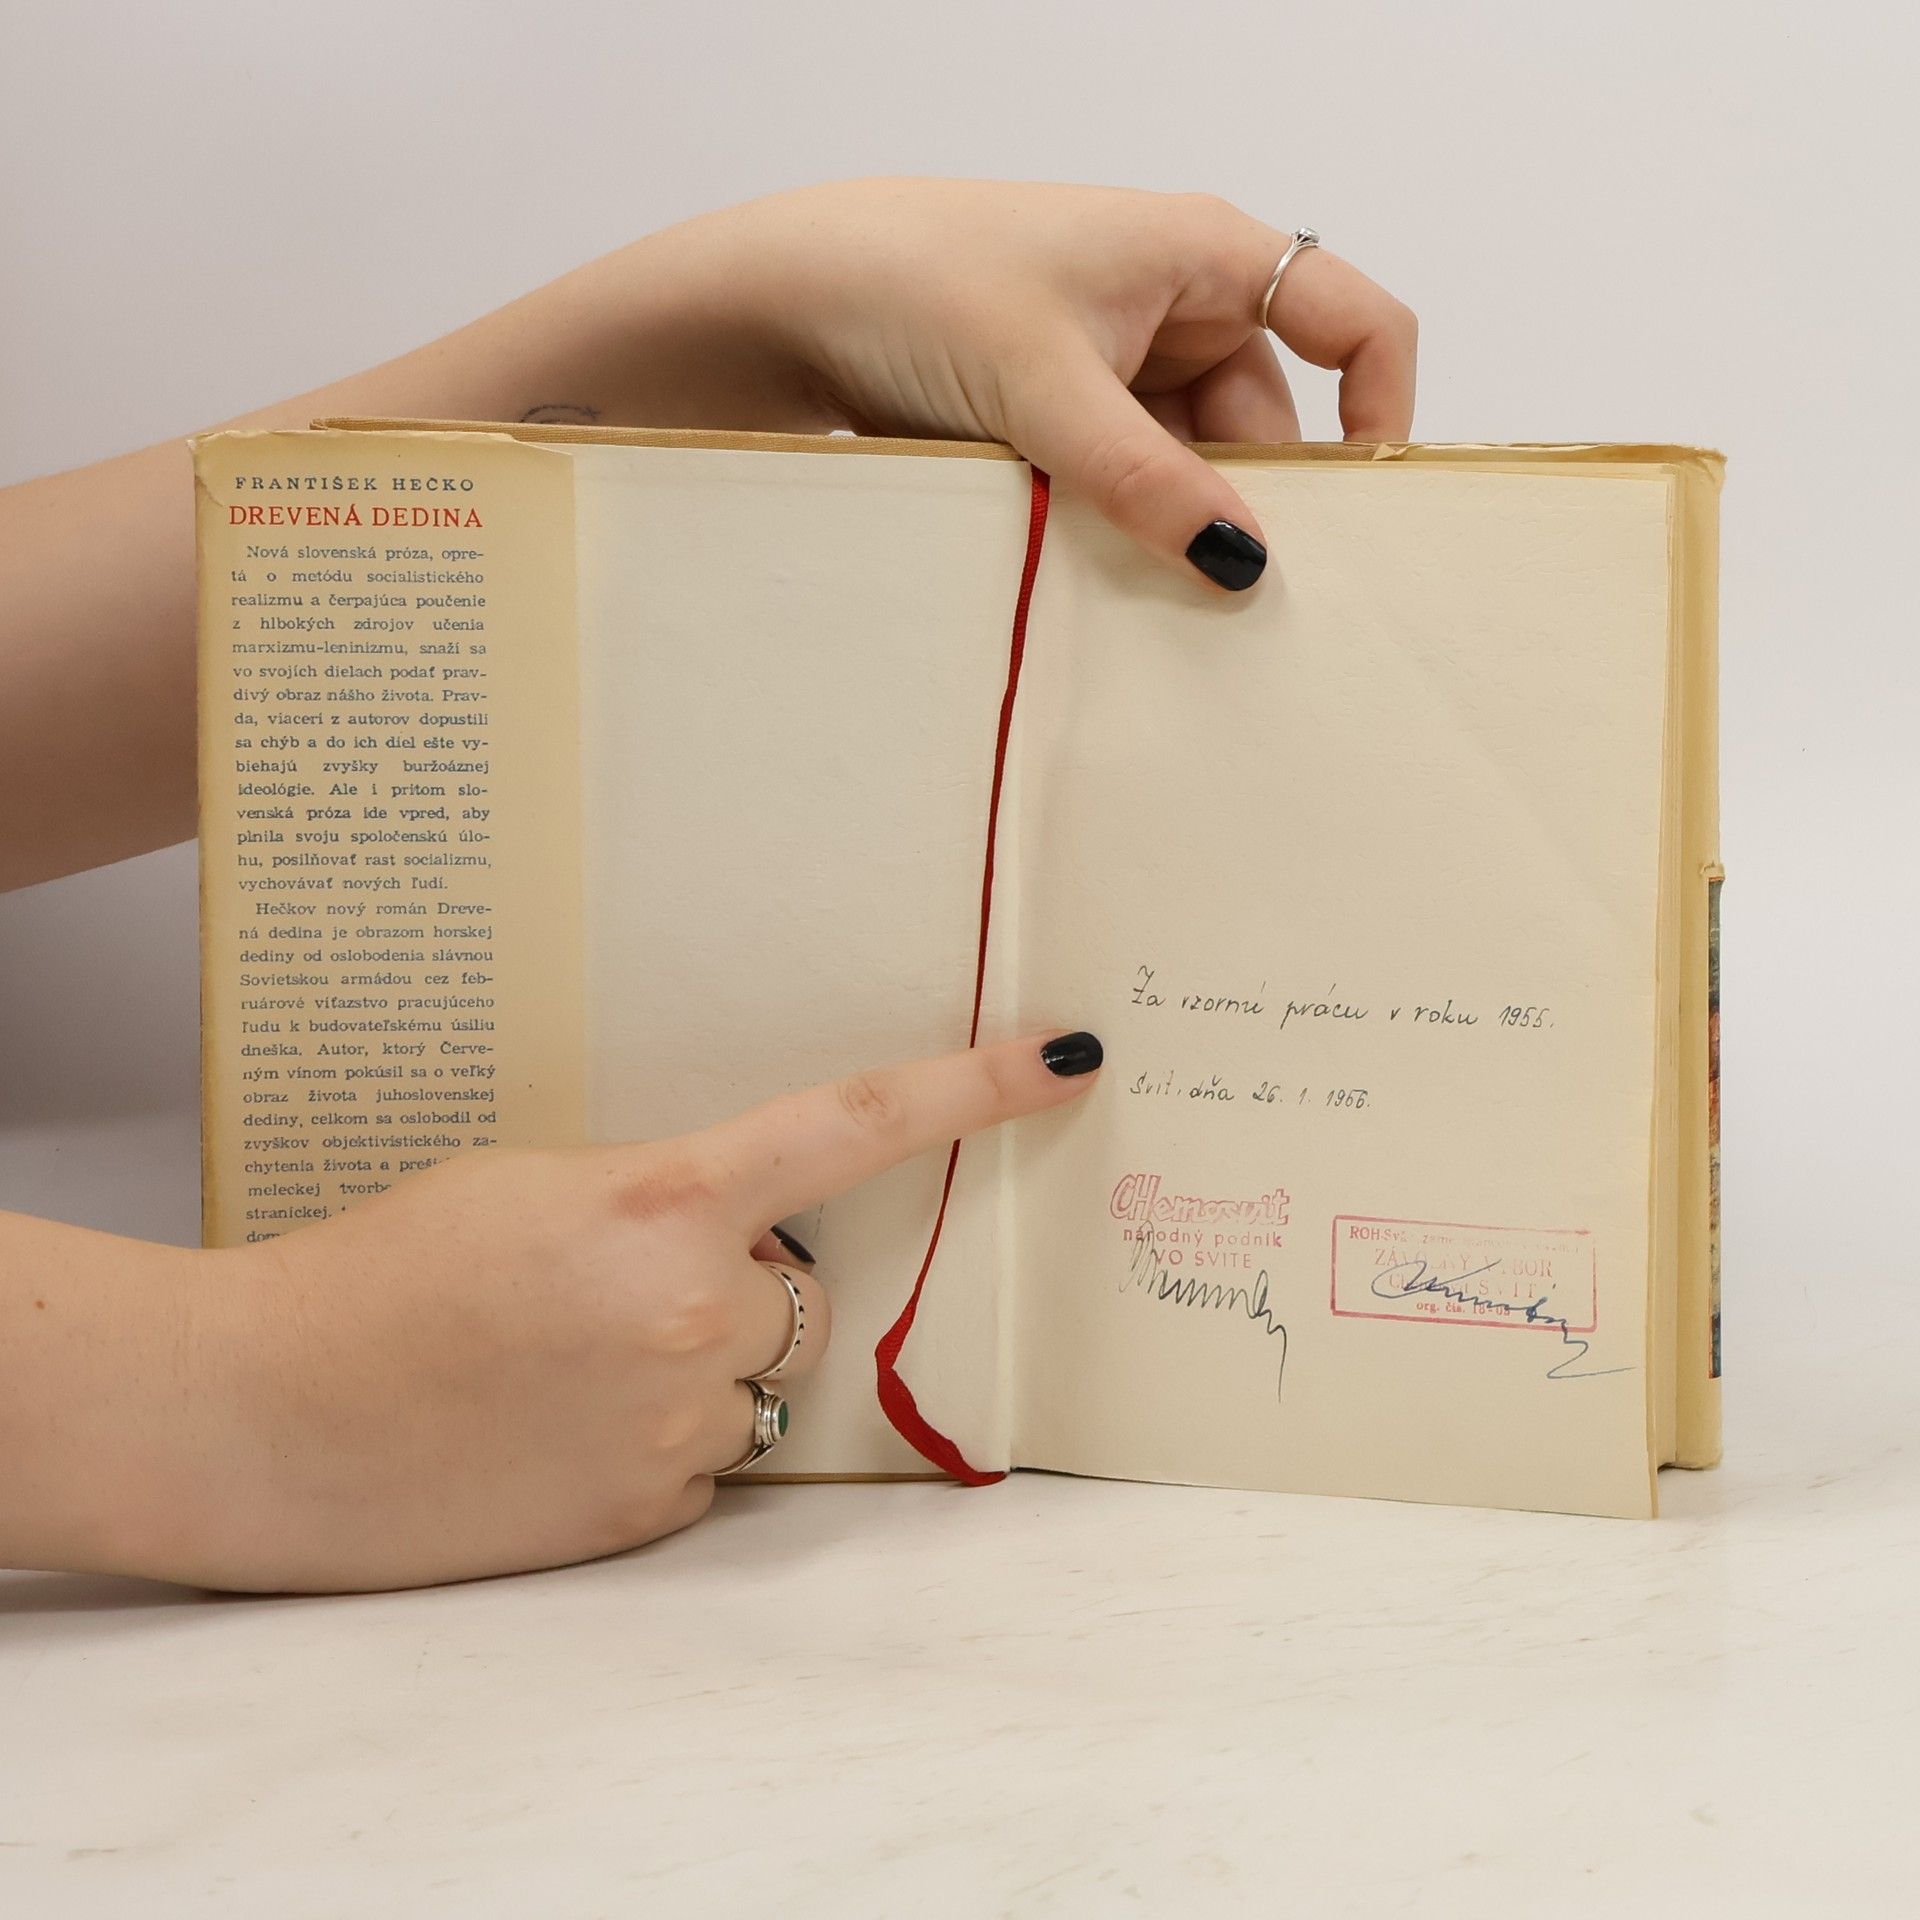 FRANTIŠEK HEČKO
DREVENÁ DEDINA
Nová slovenská próza, opre-
tá o metódu socialistického
realizmu a čerpajúca poučenie
z hlbokých zdrojov učenia
marxizmu-leninizmu, snaží sa
vo svojích dielach podať prav-
divý obraz nášho života. Prav-
da, viacerí z autorov dopustili
sa chýb a do ich diel ešte vy-
biehajú zvyšky buržoáznej
ideológie. Ale i pritom slo-
venská próza ide vpred, aby
plnila svoju spoločenskú úlo-
hu, posilňovať rast socializmu,
vychovávať nových ľudí.
Hečkov nový román Dreve-
ná dedina je obrazom horskej
dediny od oslobodenia slávnou
Sovietskou armádou cez feb-
ruárové víťazstvo pracujúceho
ľudu k budovateľskému úsiliu
dneška. Autor, ktorý Červe-
ným vínom pokúsil sa o veľký
obraz života juhoslovenskej
dediny, celkom sa oslobodil od
zvyškov objektivistického za-
chytenia života a
meleckej
straníckej.
Za vzornú prácu v roku 1955.
Svit, dňa 26. 1. 1956.
CHemosvit
národný podnik
VO SVITE
ROH-Sväz zam.
ZÁVODNÝ VÝBOR
SVIT
org. čís. 18-05